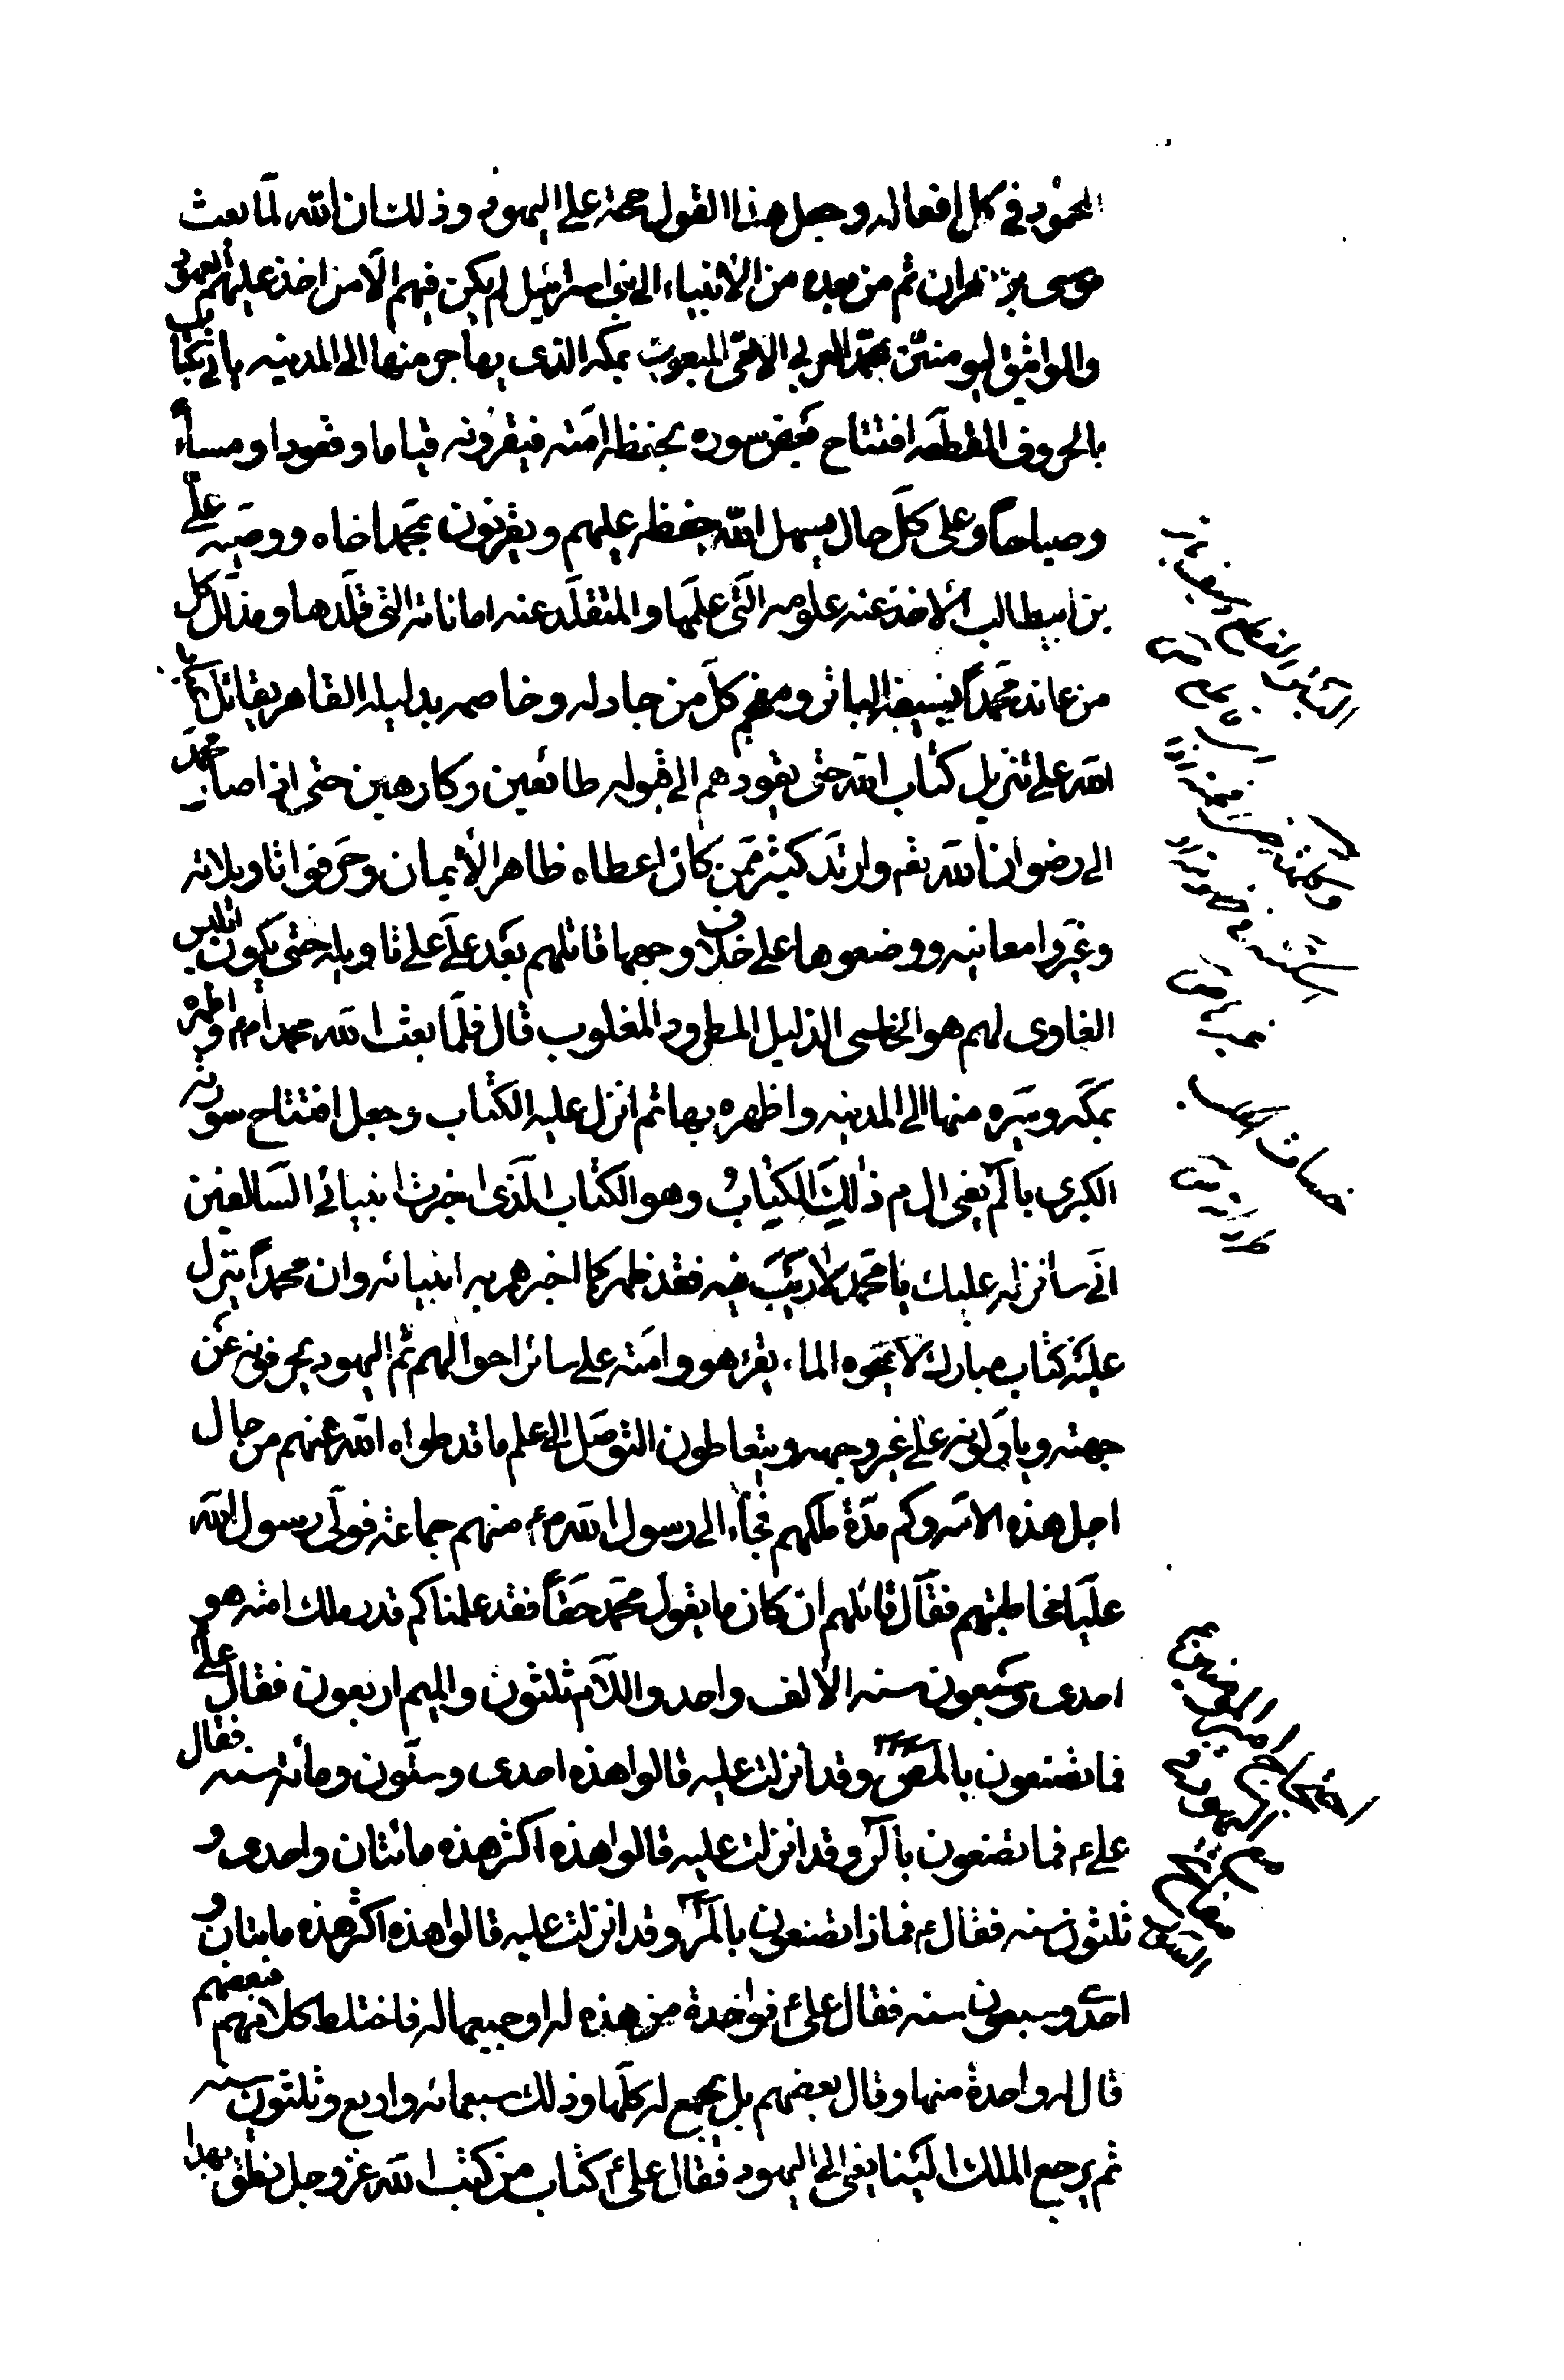 المحمود في كل افعاله وجعل هذا القول حجة على اليهود وذلك ان الله لما بعث
موسى بن عمران ثم من بعده من الانبياء الى بني اسرائيل لم يكن فيهم الا من اخذ عليهم العهود
والمواثيق ليؤمنن بمحمد العربي الامي المبعوث بمكة الذي يهاجر منها الى المدينة ياتي بكتاب
بالحروف المقطعة افتتاح بعض سوره يحفظه امته فيقرؤنه قياما وقعودا ومساء
وصباحاً وعلى كل حال يسهل الله حفظه عليهم ويقرنون بمحمد اخاه ووصيه علي
بن ابيطالب الاخذ عنه علومه التي علمها والمتقلد عنه اماناته التي قلدها ومذلل كل
من عاند محمداً بسيفه الباتر ومفحم كل من جادله وخاصمه بدليله القاهر يقاتل عباد
الله على تنزيل كتاب الله حتى يقودهم الى قبوله طائعين وكارهين حتى اذا صار محمد
الى رضوان الله تعم وارتد كثير ممن كان اعطاه ظاهر الايمان وحرفوا تاويلاته
وغيروا معانيه ووضعوها على خلاف وجهها قاتلهم بعد علي على تاويله حتى يكون ابليس
الغاوي لهم هو الخاسي الذليل المطرود المغلوب قال فلما بعث الله محمدا م وأظهره
بمكة وسيره منها الى المدينة واظهره بها ثم انزل عليه الكتاب وجعل افتتاح سورته
الكبرى بالم يعني ال م ذٰلِكَ الكِتَابُ وهو الكتاب الذي اخبرت انبيائي السالفين
اني سانزله عليك يا محمد لا رَيْبَ فيه فقد ظهر كما اخبرهم به انبيائه وان محمداً ينزل
عليه كتاب مبارك لا يمحوه الماء يقرئه هو وامته على سائر احوالهم ثم اليهود يحرفونه عن
جهته وياولونه على غير وجهه ويتعاطون التوصل الى علم ما قد طواه الله عنهم من حال
اجل هذه الامة وكم مدة ملكهم فجاء الى رسول الله م منهم جماعة فولى رسول الله
علياً مخاطبتهم فقال قائلهم ان كان ما يقول محمد حقاً فقد علمناكم قدر ملك امته هو
احدى وسبعون سنه الالف واحد واللام ثلثون والميم اربعون فقال علي
فما تصنعون بالمص وقد انزلت عليه قالوا هذه احدى وستون ومائة سنه فقال
علي ع فما تصنعون بالر وقد انزلت عليه قالوا هذه اكثر هذه مائتان واحدى و
ثلثون سنه فقال ع فماذا تصنعون بالمر وقد انزلت عليه قالوا هذه اكثر هذه مايتان و
احدى وسبعون سنه فقال علي ع فواحدة من هذه له او جميعها له فاختلط كلامهم فبعضهم
قال له واحدة منها وقال بعضهم بل يجمع له كلها وذلك سبعمائة واربع وثلثون سنه
ثم يرجع الملك الينا يعني الى اليهود فقال علي ع أكتاب من كتب الله عز وجل نطق بهذا